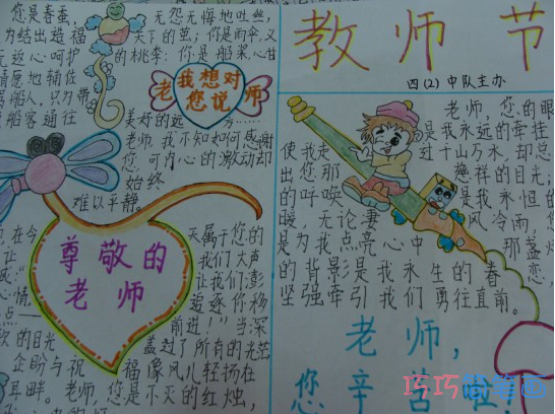 您是春蚕,
无怨无悔地吐丝,
为结出造福
天下的茧;
您是雨伞,又
的桃李;您是船桨,心甘
情愿地辅佐
船客通往
美好的远方……
老师
我想对
您说
老师,我不知如何感谢
您,可内心的激动却
始终
难以平静。
尊敬的
老师
灭属于您的
我们大声
让我们澎
心情
追逐你杨
前进!"当深
的目光
盖过了所有的光芒
企盼与祝
福像风儿轻扬在
耳畔。老师,您是不灭的红烛,
教师节
四(2)中队主办
老师,您的眼
是我永远的牵挂
使我走
过千山万水,却总
出您那
慈祥的目光;
的呼唤
是我永恒的
暖,无论凄
风冷雨,您
是为我点亮心中
那盏灯
的背影是我永生的眷恋,
坚强牵引我们勇往直前。
老师,
您辛苦啦
巧巧简笔画